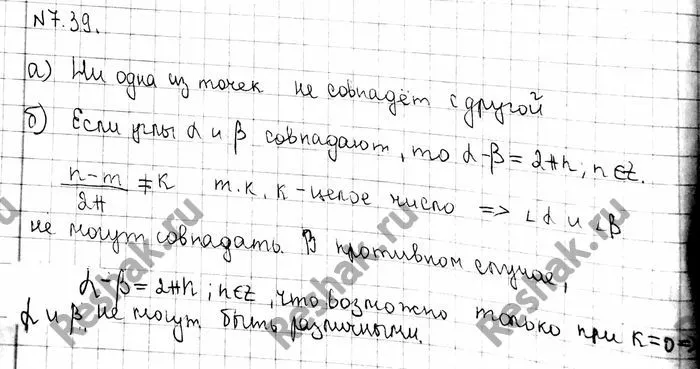 N7.39.
а) Ни одна из точек не совпадёт с другой
б) Если углы α и β совпадают, то α-β=2πn; n∈Z.
(n-m)/2π ≠ K т.к. K-целое число => ∠α и ∠β
не могут совпадать. В противном случае,
α-β=2πn; n∈Z, что возможно только при K=0=>
α и β не могут быть различными.
Reshak.ru
Reshak.ru
Reshak.ru
Reshak.ru